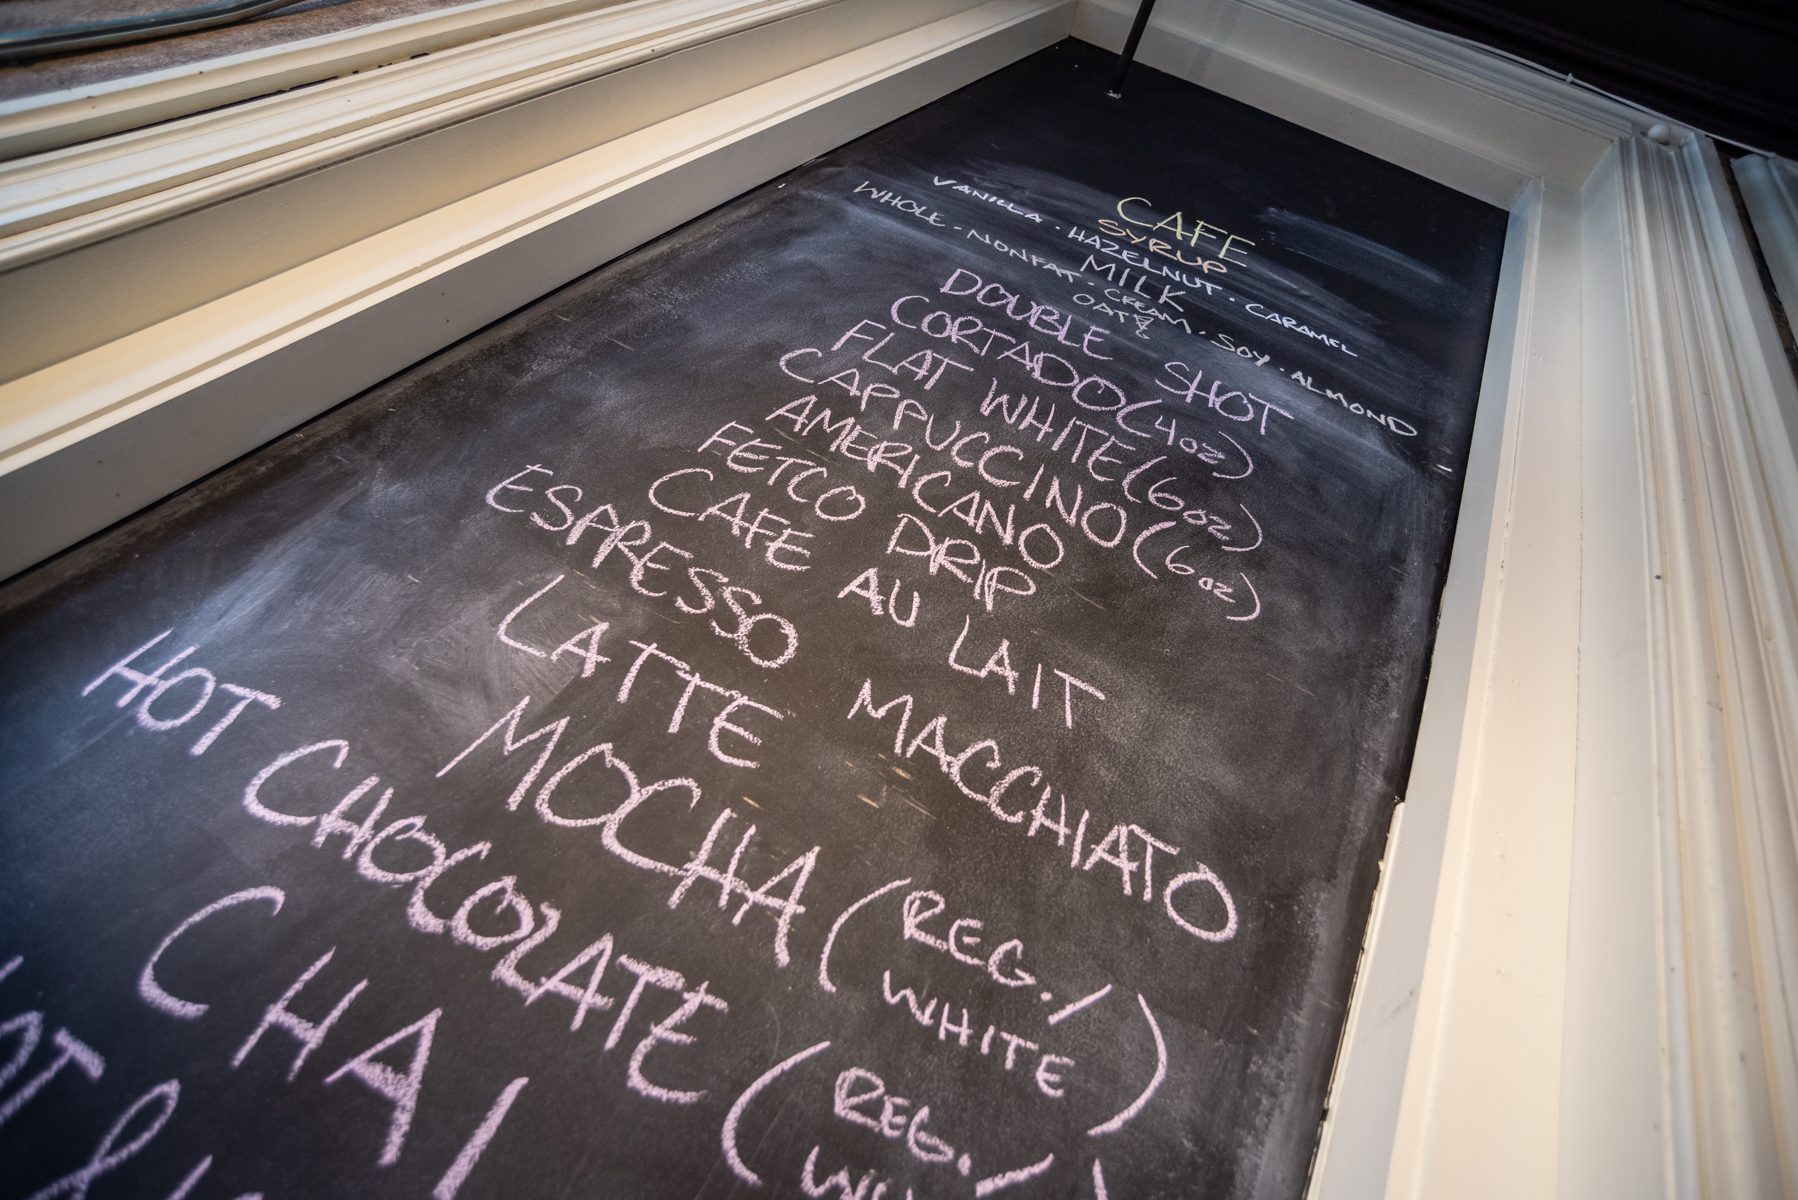 CAFE
SYRUP
VANILLA · HAZELNUT · CARAMEL
MILK
WHOLE · NONFAT · CREAM · SOY · ALMOND
OAT
DOUBLE SHOT
CORTADO (4oz)
FLAT WHITE (6oz)
CAPPUCCINO (6oz)
AMERICANO
FETCO DRIP
CAFE AU LAIT
ESPRESSO MACCHIATO
LATTE
MOCHA (REG./
WHITE)
HOT CHOCOLATE (REG./
CHAI